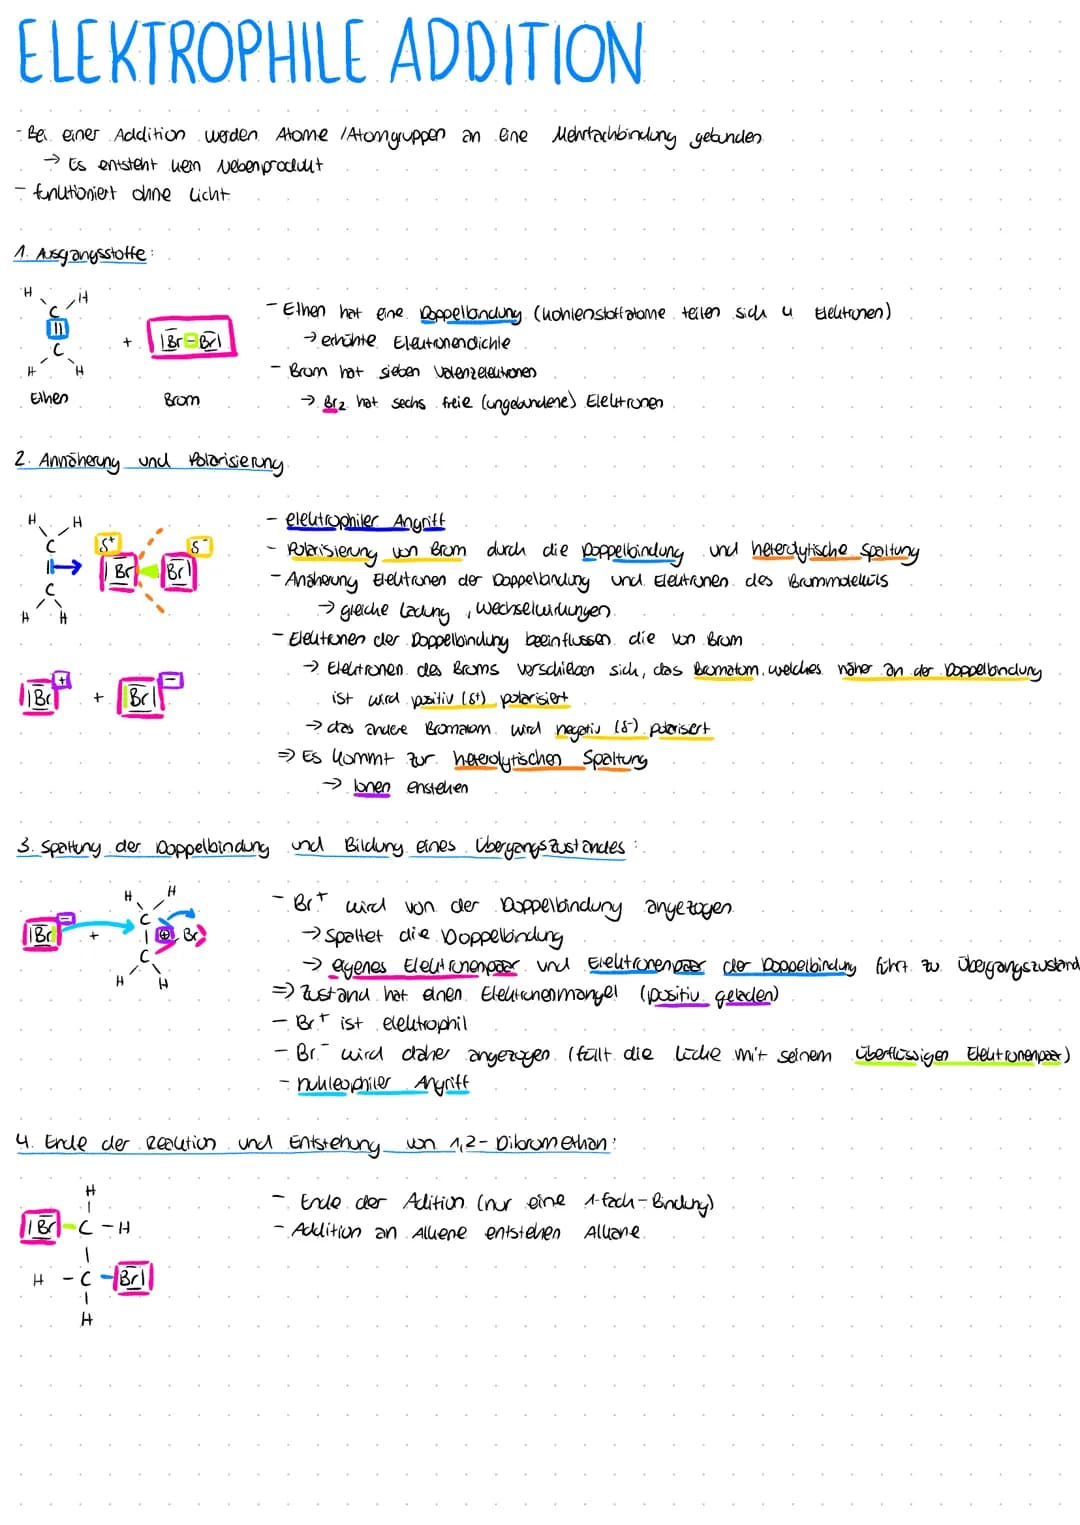 ELEKTROPHILE ADDITION
- Bei einer Addition werden Atome /Atomgruppen an eine Mehrfachbindung gebunden
→ Es entsteht kein Nebenprodukt
- funktioniert ohne Licht
1. Ausgangsstoffe:
H
H
C
C
H
H
+
|Br-Br|
Ethen
Brom
- Ethen hat eine Doppelbindung (Kohlenstoffatome teilen sich 4 Elektronen)
→ erhöhte Elektronendichte
- Brom hat sieben Valenzelektronen
→ Br2 hat sechs freie (ungebundene) Elektronen
2. Annäherung und Polarisierung
H
H
C
C
H
H
δ+
δ-
|Br
Br|
- elektrophiler Angriff
- Polarisierung von Brom durch die Doppelbindung und heterolytische Spaltung
- Annherung Elektronen der Doppelbindung und Elektronen des Brommoleküls
→ gleiche Ladung, Wechselwirkungen
- Elektronen der Doppelbindung beeinflussen die von Brom
→ Elektronen des Broms verschieben sich, das Bromatom, welches näher an der Doppelbindung
ist wird positiv (δ+) polarisiert
→ das andere Bromatom wird negativ (δ-) polarisert
⇒ Es kommt zur heterolytischen Spaltung
→ Ionen enstehen
|Br
+
+
|Br|
-
3. Spaltung der Doppelbindung und Bildung eines Übergangszustandes:
|Br|
-
+
H
H
C
C
H
H
⊕
Br
- Br+ wird von der Doppelbindung angezogen
→ Spaltet die Doppelbindung
→ eigenes Elektronenpaar und Elektronenpaar der Doppelbindung führt zu Übergangszustand
⇒ Zustand hat einen Elektronenmangel (positiv geladen)
- Br+ ist elektrophil
- Br- wird daher angezogen (füllt die Lücke mit seinem überflüssigen Elektronenpaar)
- nukleophiler Angriff
4. Ende der Reaktion und Entstehung von 1,2-Dibromethan:
H
|Br-C-H
H-C-Br|
H
- Ende der Adition (nur eine 1-fach-Bindung)
- Addition an Alkene entstehen Alkane